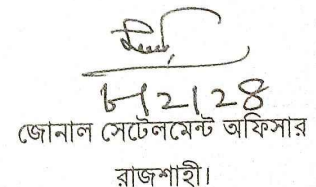 ৮/২/২৪
জোনাল সেটেলমেন্ট অফিসার
রাজশাহী।